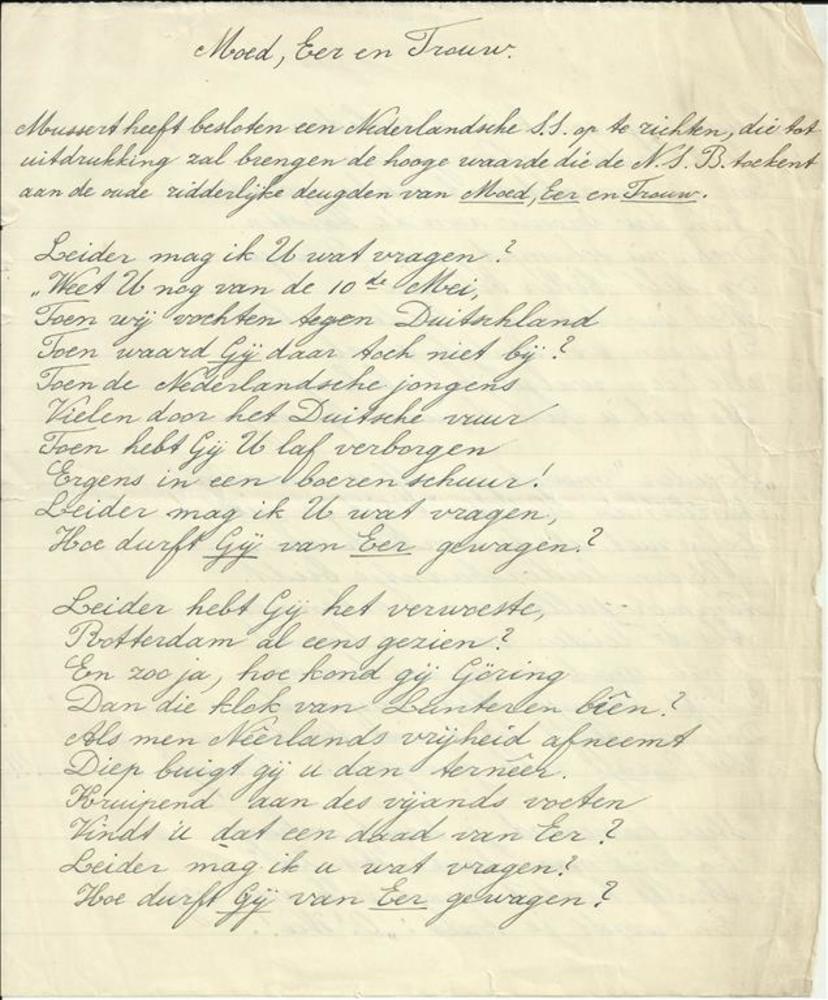 Moed, Eer en Trouw.
Mussert heeft besloten een Nederlandsche S.S. op te richten, die tot
uitdrukking zal brengen de hooge waarde die de N.S.B. toekent
aan de oude ridderlijke deugden van Moed, Eer en Trouw.
Leider mag ik U wat vragen?
„Weet U nog van de 10de Mei,
Toen wij vochten tegen Duitschland
Toen waard Gij daar toch niet bij?
Toen de Nederlandsche jongens
Vielen door het Duitsche vuur
Toen hebt Gij U laf verborgen
Ergens in een boerenschuur!
Leider mag ik U wat vragen,
Hoe durft Gij van Eer gewagen?
Leider hebt Gij het verwoeste,
Rotterdam al eens gezien?
En zoo ja, hoe kond gij Göring
Dan die klok van Lunteren biên?
Als men Neêrlands vrijheid afneemt
Diep buigt gij u dan terneêr.
Kruipend aan des vijands voeten
Vindt u dat een daad van Eer?
Leider mag ik u wat vragen?
Hoe durft Gij van Eer gewagen?